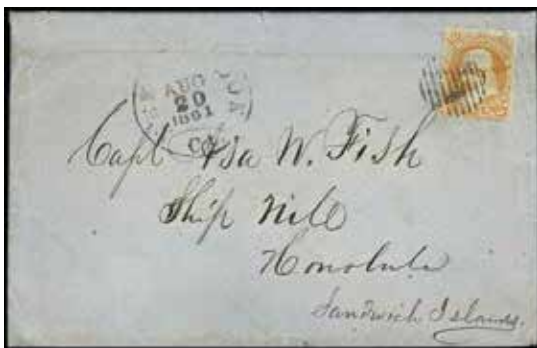 AUG
20
1861
Capt Asa W. Fish
Ship Nile
Honolulu
Sandwich Islands.